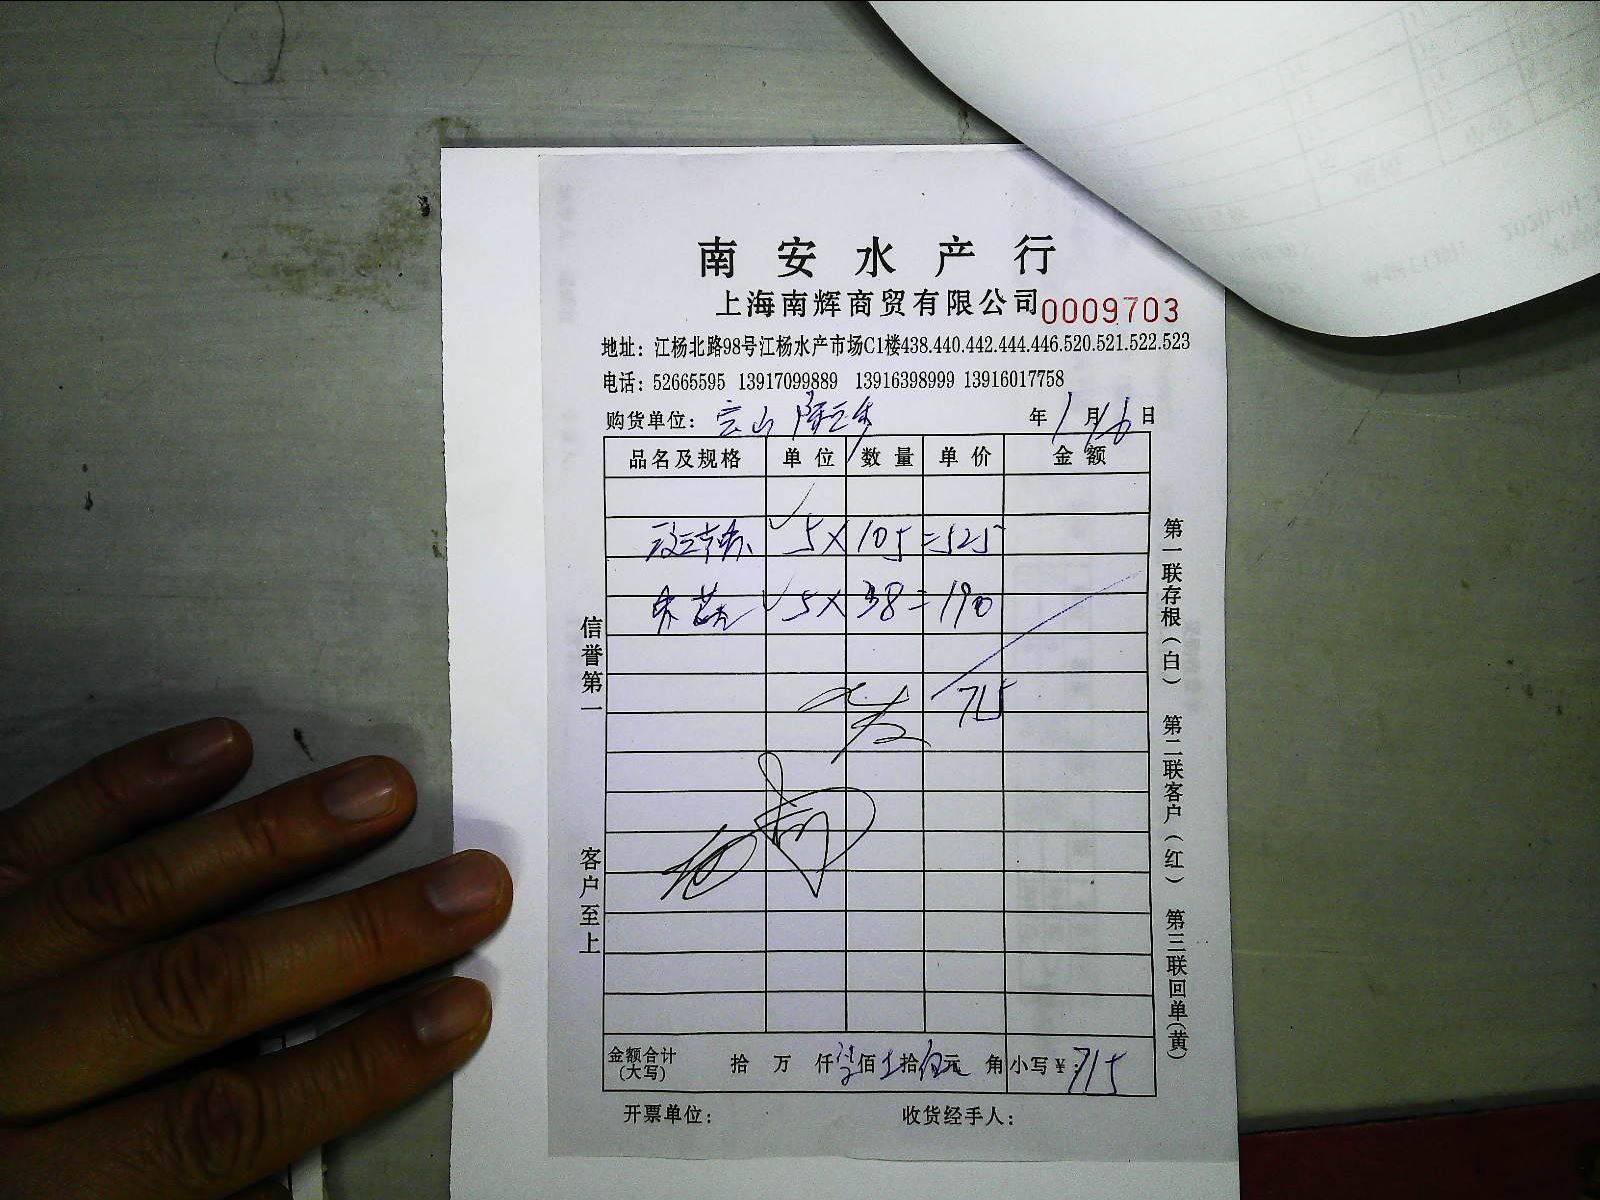 南安水产行
上海南辉商贸有限公司 0009703
地址：江杨北路98号江杨水产市场C1楼438.440.442.444.446.520.521.522.523
电话：52665595 13917099889 13916398999 13916017758
购货单位：宝山 年1月16日
品名及规格 单位 数量 单价 金额
5×105=525
5×38=190
715
金额合计（大写） 拾 万 仟 柒佰 壹拾 伍元 角 小写¥：715
开票单位： 收货经手人：
信誉第一 客户至上
第一联存根（白） 第二联客户（红） 第三联回单（黄）